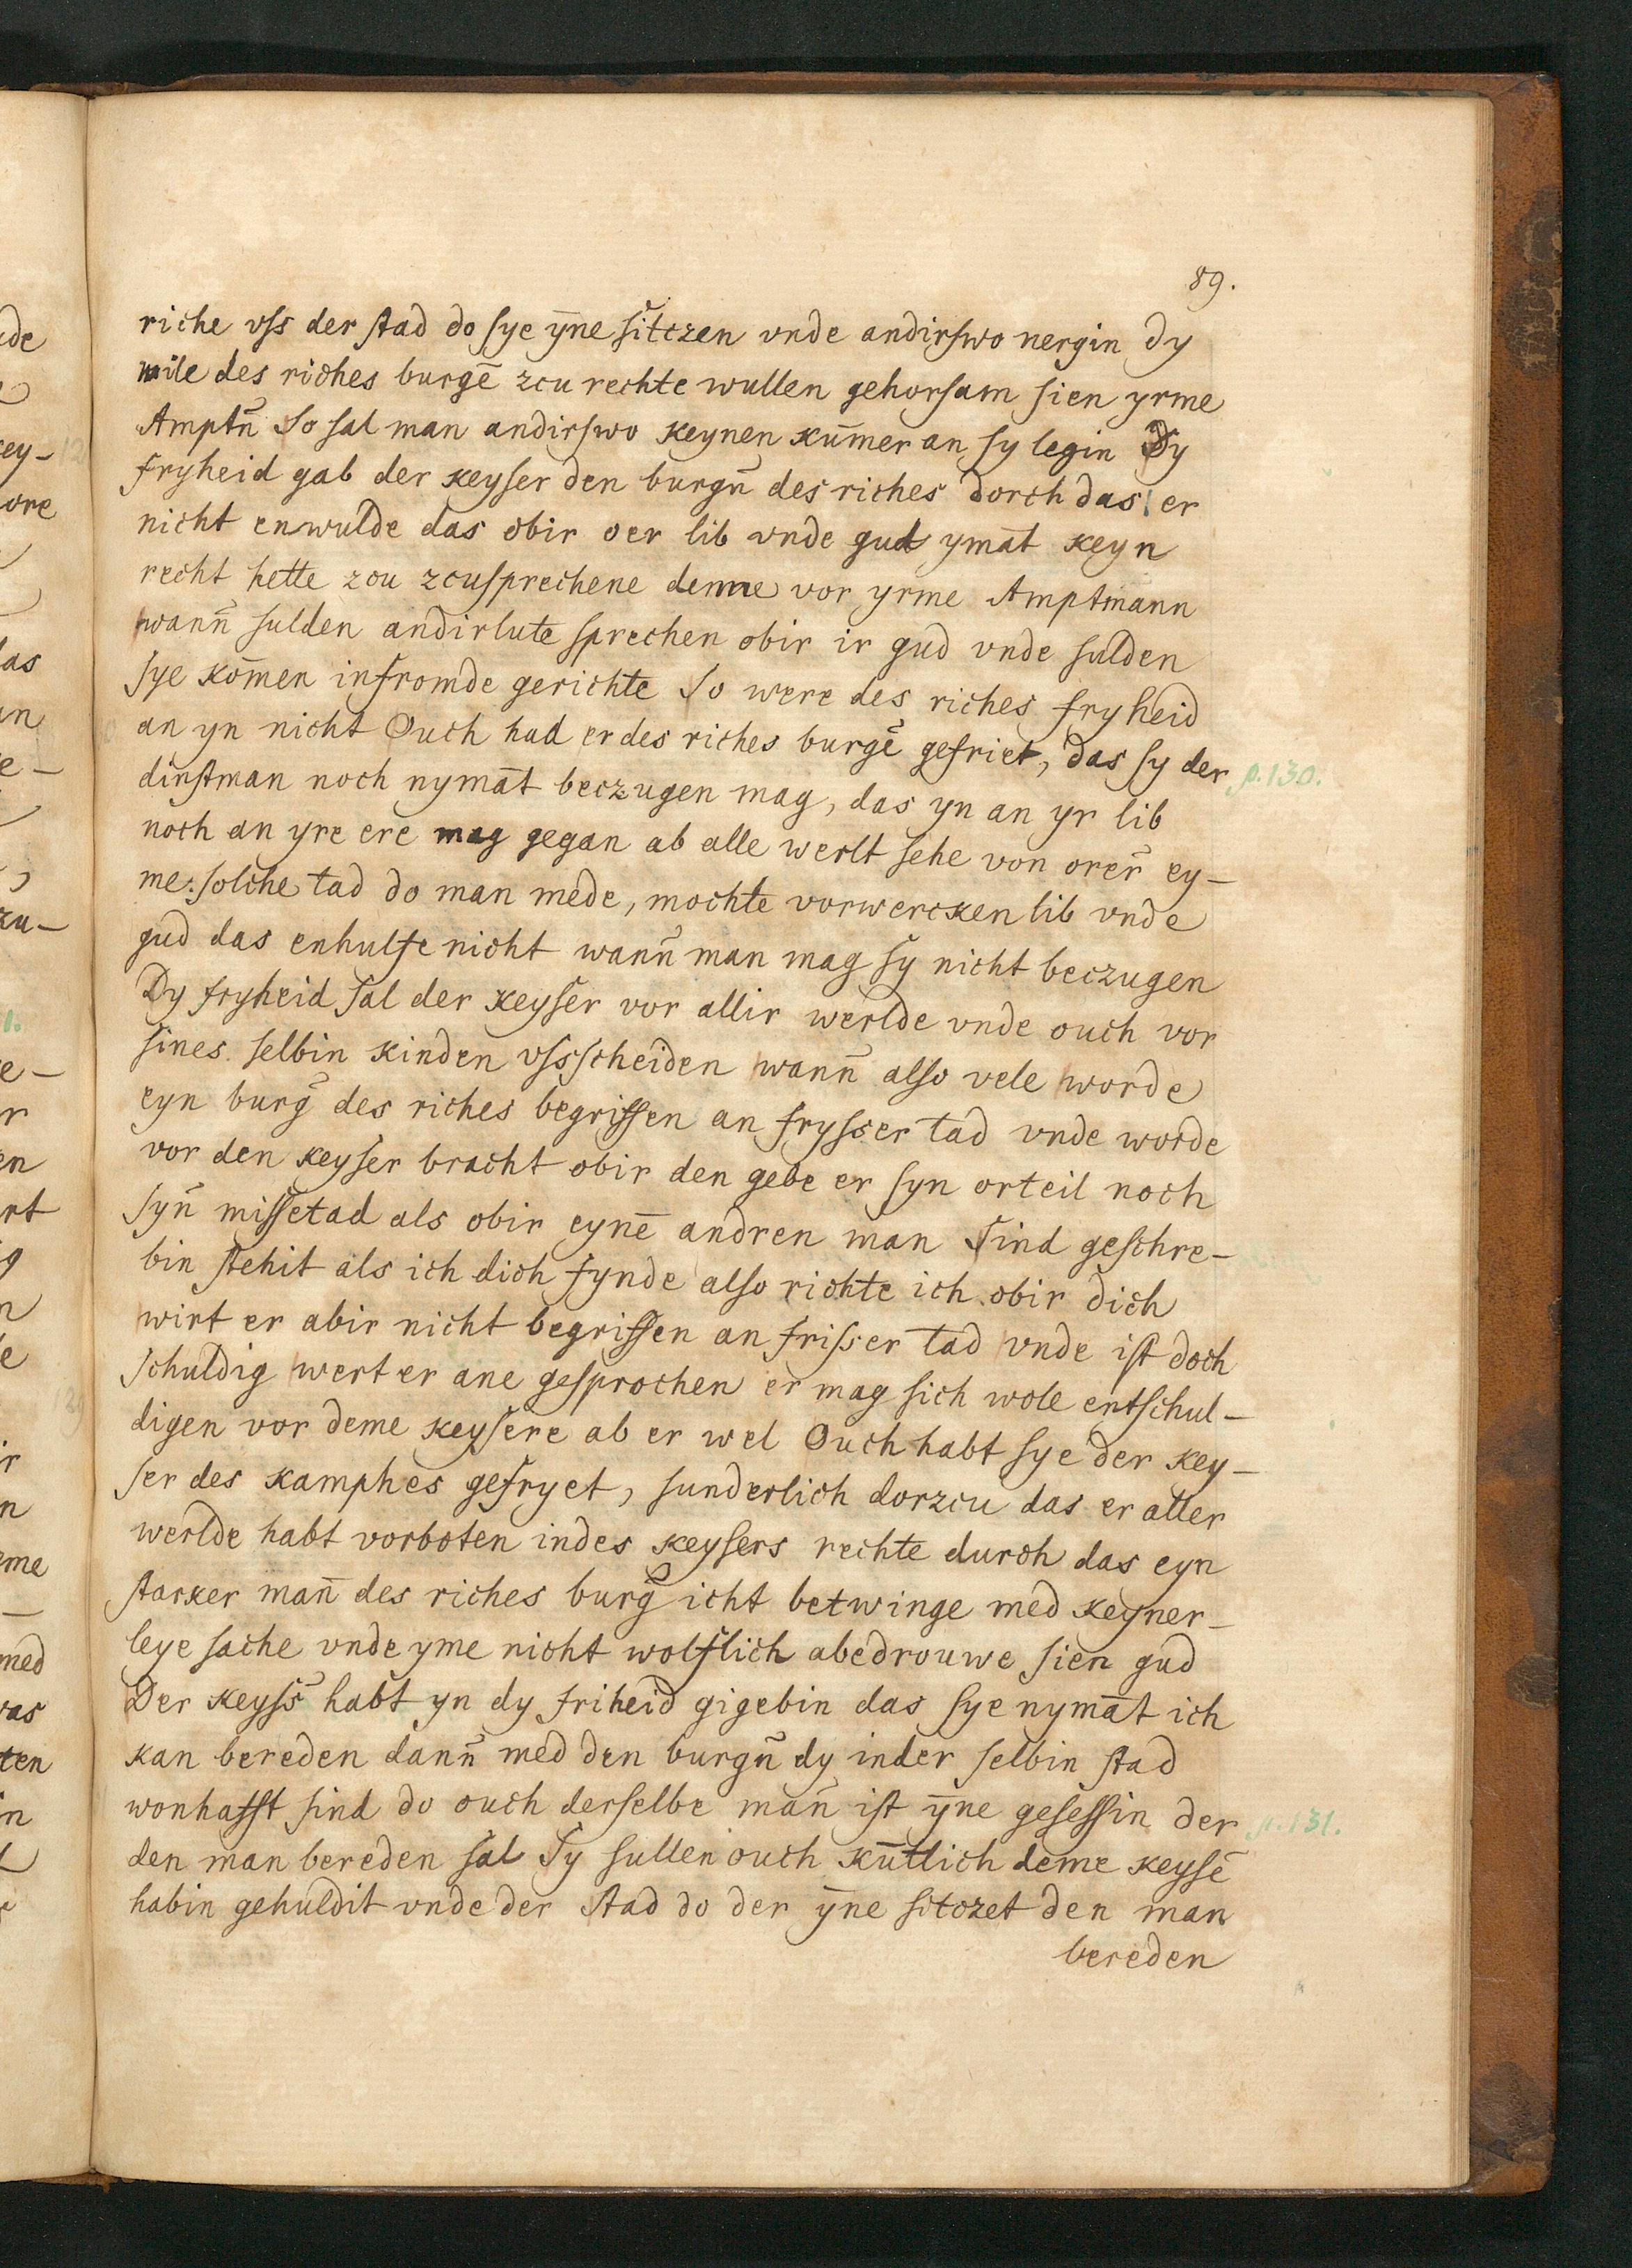 89.
riche vſs der ſtad do ſye ȳne ſitczen vnde andirſwo nergin dy
wile des riches burgē zcu rechte wullen gehorſam ſien yrme
Amptn̄ So ſal man andirſwo keynen kum̄er an ſy legin Dy
fryheid gab der keyſer den burgn̄ des riches dorch das er
nicht enwulde das obir oer lib vnde gud ymāt keyn
recht hette zcu zcuſprechene denne vor yrme Amptmann
wann̄ ſulden andirlute ſprechen obir ir gud vnde ſulden
ſye kom̄en infromde gerichte So were des riches fryheid
an yn nicht Ouch had er des riches burgē gefriet, das ſy der
p. 130.
dinſtman noch nymāt beczugen mag, das yn an yr lib
noch an yre ere mag gegan ab alle werlt ſehe von orer̄ ey-
me. ſolche tad do man mede, mochte vorwercken lib vnde
gud das enhulfe nicht wann̄ man mag ſy nicht beczugen
Dy fryheid ſal der keyſer vor allir werlde vnde ouch vor
ſines. ſelbin kinden vſsſcheiden wann̄ alſo vele worde
eyn burḡ des riches begriffen an fryſser tad vnde worde
vor den keyſer bracht obir den gebe er ſyn orteil noch
ſyn̄ miſſetad als obir eynē andren man Sind geſchre-
bin ſtehit als ich dich fynde alſo richte ich obir dich
wirt er abir nicht begriffen an friſser tad vnde iſt doch
ſchuldig wert er ane geſprochen er mag ſich wole entſchul-
digen vor deme keyſere ab er wel Ouch habt ſye der key-
ſer des kamphes gefryet, ſunderlich dorzcu das er aller
werlde habt vorboten indes keyſers rechte durch das eyn
ſtarker man̄ des riches burḡ icht betwinge med keyner-
leye ſache vnde yme nicht wolflich abedrouwe ſien gud
Der keyſs̄ habt yn dy friheid gigebin das ſye nymāt ich
kan bereden dann̄ med den burgn̄ dy inder ſelbin ſtad
wonhafft ſind do ouch derſelbe man̄ iſt ȳne geſeſſin der
p. 131.
den man bereden ſal Sy ſullen ouch kūtlich deme keyſē
habin gehuldit vnde der ſtad do der ȳne ſitczet den man
bereden